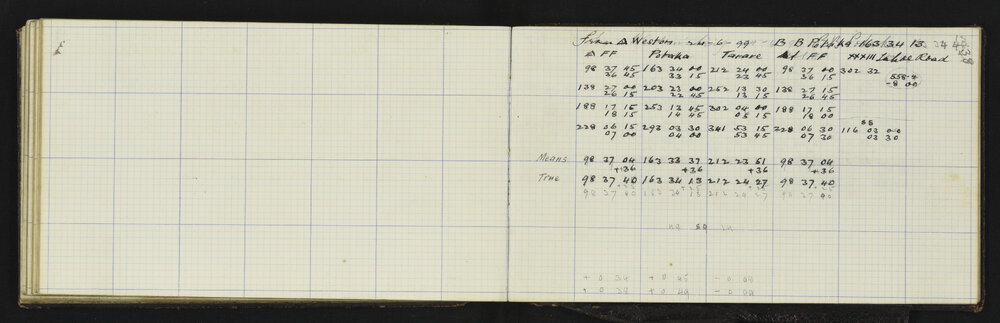 Δ Weston 24-6-99 B B Potaka 163 34 13
Δ FF Potaka Tamare Δ FF XXIII Road
98 37 45 163 34 00 212 24 00 98 37 00 302 32
36 45 33 15 23 45 36 15 558.7
-8 00
138 27 00 203 23 00 252 13 30 138 27 15
26 15 22 45 13 15 26 45
188 17 15 253 13 45 302 04 00 188 17 15
18 15 14 45 05 15 18 00
228 06 15 293 03 30 341 53 15 228 06 30 116 03 00
07 00 04 00 53 45 07 30 03 30
Means 98 37 04 163 33 37 212 23 51 98 37 04
+36 +36 +36 +36
True 98 37 40 163 34 13 212 24 27 98 37 40
98 37 40 163 34 13 212 24 27 98 37 40
+ 0 34 + 0 45 - 0 09
+ 0 38 + 0 49 - 0 09